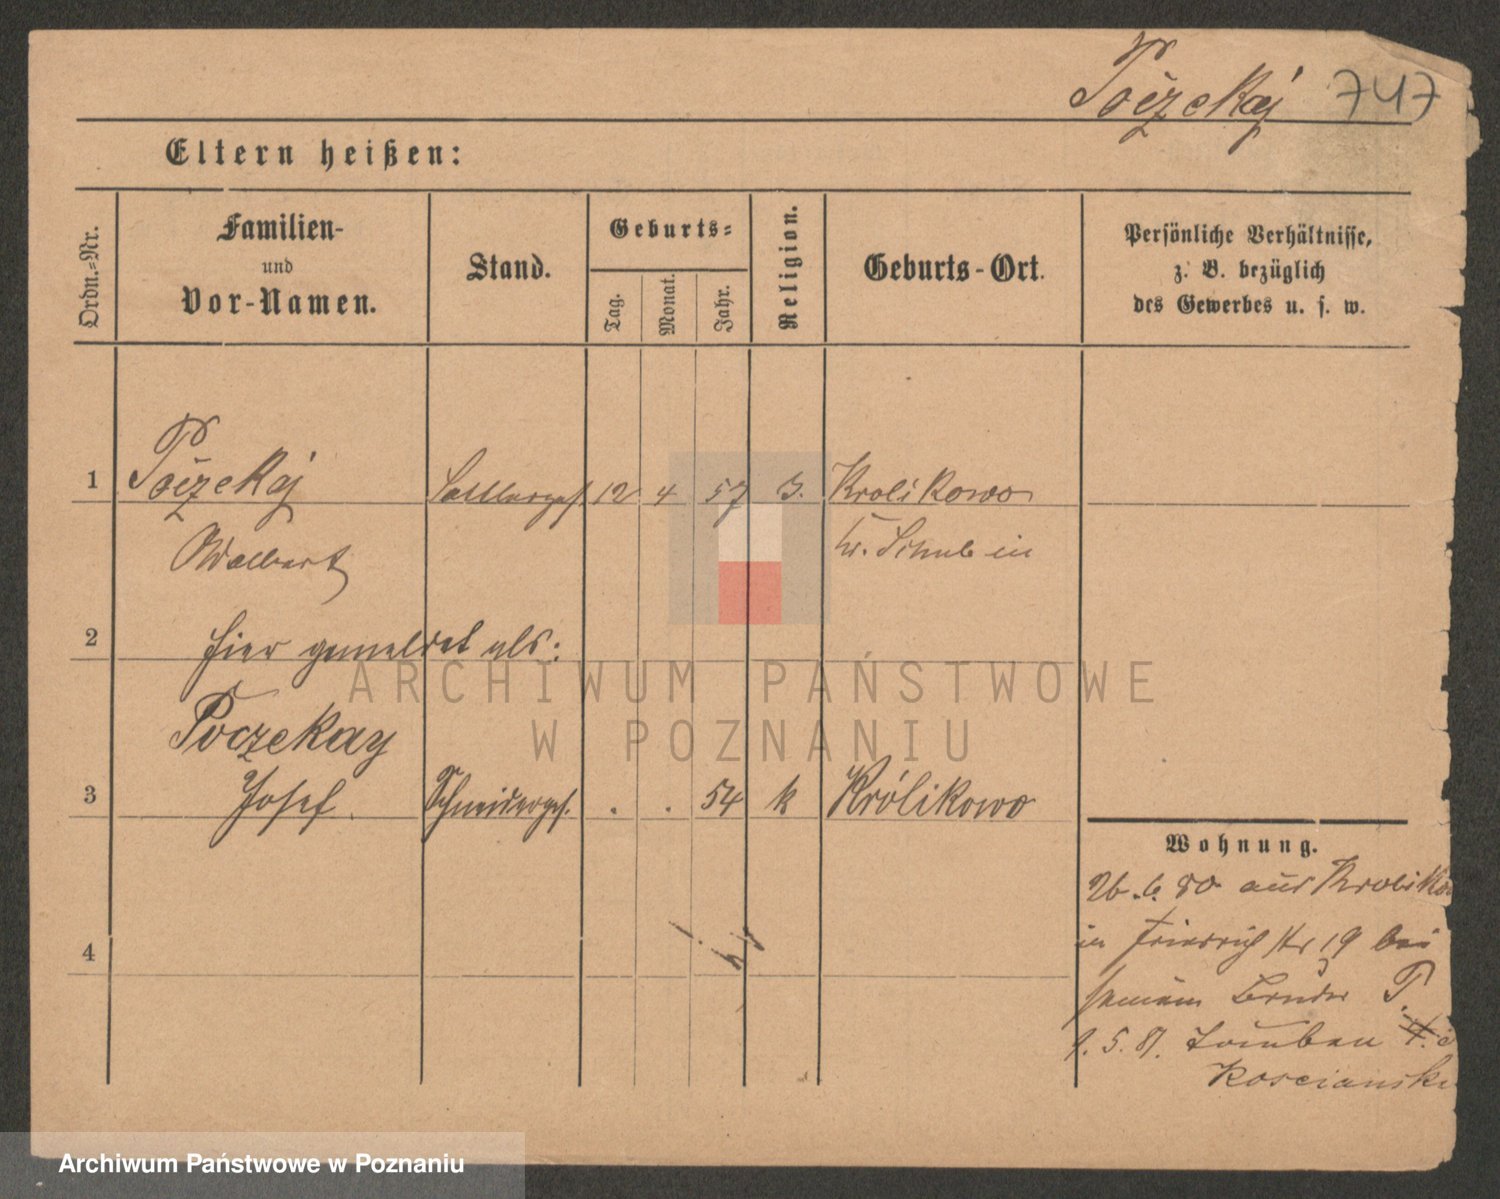 Počzekaj 747
Eltern heißen:
Ordn.-Nr.
Familien-
und
Vor-Namen.
Stand.
Geburts-
Tag.
Monat.
Jahr.
Religion.
Geburts-Ort.
Persönliche Verhältnisse,
z. B. bezüglich
des Gewerbes u. s. w.
1 Poczekaj 12 4 57 Krolikowo
Adalbert Kr. Schubin
2 hier gemeldet als:
Poczekay
3 Josef. Schneiderges. . . 54 k Królikowo
4
Wohnung.
26.6.80 aus
in Friedrich str 19 bei
seinem Bruder P.
1.5.81.
ARCHIWUM PAŃSTWOWE
W POZNANIU
Archiwum Państwowe w Poznaniu